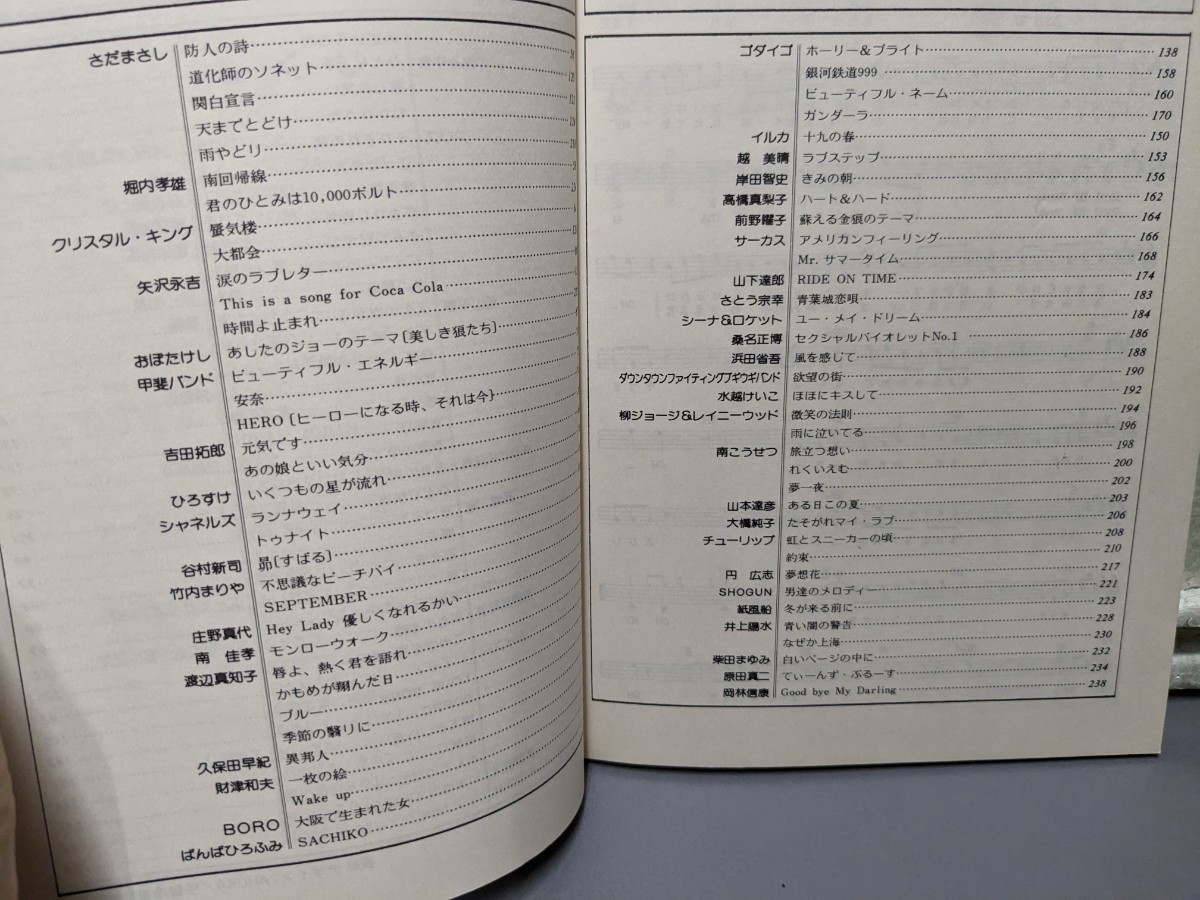 さだまさし 防人の詩
道化師のソネット
関白宣言
天までとどけ
雨やどり
堀内孝雄 南回帰線
君のひとみは10,000ボルト
クリスタル・キング 蜃気楼
大都会
矢沢永吉 涙のラブレター
This is a song for Coca Cola
時間よ止まれ
おぼたけし あしたのジョーのテーマ〔美しき狼たち〕
甲斐バンド ビューティフル・エネルギー
安奈
HERO〔ヒーローになる時、それは今〕
吉田拓郎 元気です
あの娘といい気分
ひろすけ いくつもの星が流れ
シャネルズ ランナウェイ
トゥナイト
谷村新司 昴〔すばる〕
竹内まりや 不思議なピーチパイ
SEPTEMBER
庄野真代 Hey Lady 優しくなれるかい
南 佳孝 モンローウォーク
渡辺真知子 唇よ、熱く君を語れ
かもめが翔んだ日
ブルー
季節の翳りに
久保田早紀 異邦人
財津和夫 一枚の絵
Wake up
BORO 大阪で生まれた女
ばんばひろふみ SACHIKO
ゴダイゴ ホーリー&ブライト 138
銀河鉄道999 158
ビューティフル・ネーム 160
ガンダーラ 170
イルカ 十九の春 150
越 美晴 ラブステップ 153
岸田智史 きみの朝 156
高橋真梨子 ハート&ハード 162
前野曜子 蘇える金狼のテーマ 164
サーカス アメリカンフィーリング 166
Mr. サマータイム 168
山下達郎 RIDE ON TIME 174
さとう宗幸 青葉城恋唄 183
シーナ&ロケット ユー・メイ・ドリーム 184
桑名正博 セクシャルバイオレットNo.1 186
浜田省吾 風を感じて 188
ダウンタウンファイティングブギウギバンド 欲望の街 190
水越けいこ ほほにキスして 192
柳ジョージ&レイニーウッド 微笑の法則 194
雨に泣いてる 196
南こうせつ 旅立つ想い 198
れくいえむ 200
夢一夜 202
山本達彦 ある日この夏 203
大橋純子 たそがれマイ・ラブ 206
チューリップ 虹とスニーカーの頃 208
約束 210
円 広志 夢想花 217
SHOGUN 男達のメロディー 221
紙風船 冬が来る前に 223
井上陽水 青い闇の警告 228
なぜか上海 230
柴田まゆみ 白いページの中に 232
原田真二 てぃーんず・ぶるーす 234
岡林信康 Good bye My Darling 238